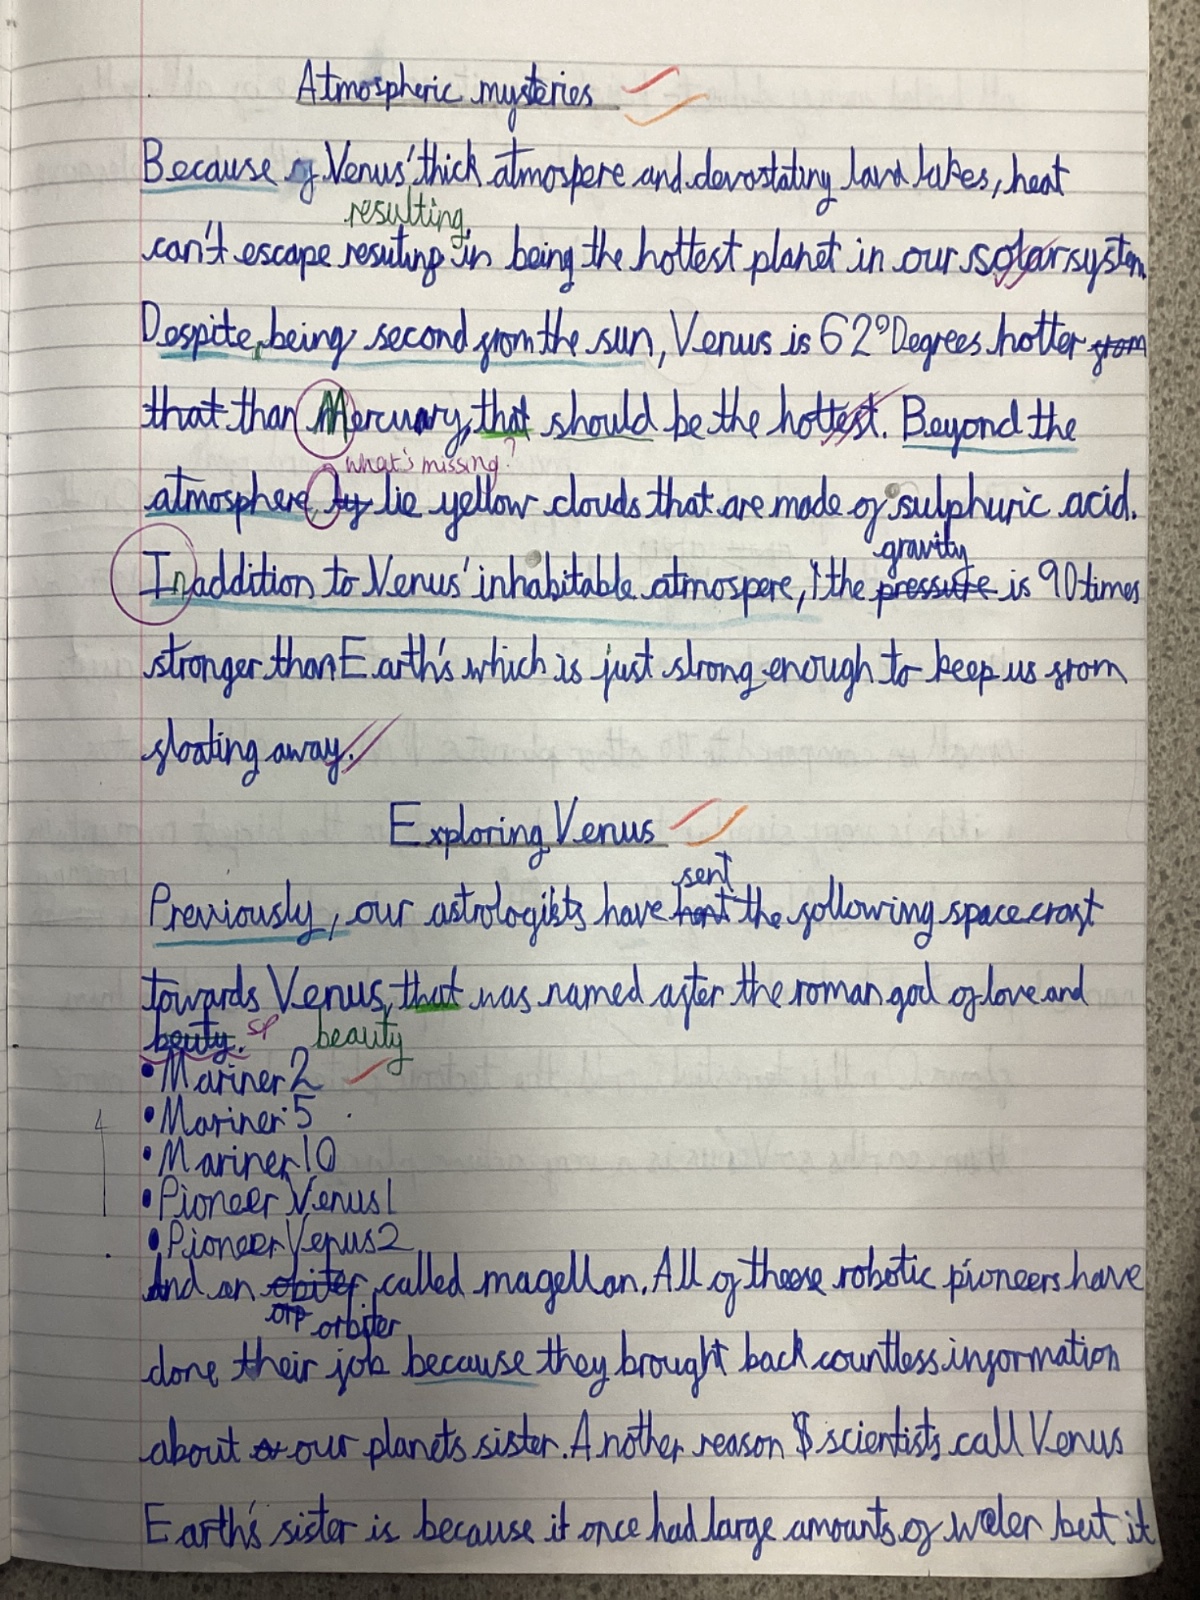 Atmospheric mysteries
Because of Venus' thick atmospere and devastating lava lakes, heat
resulting
can't escape resuting in being the hottest planet in our solar system.
Despite, being second from the sun, Venus is 62° Degrees hotter from
that than Mercuary, that should be the hottest. Beyond the
what's missing?
atmosphere, ly lie yellow clouds that are made of sulphuric acid.
gravity
In addition to Venus' inhabitable atmospere, the pressure is 90 times
stronger than Earth's which is just strong enough to keep us from
floating away.
Exploring Venus
sent
Previously, our astrologists have hent the following space craft
towards Venus, that was named after the roman god of love and
beuty. sp beauty
• Mariner 2
• Mariner 5
• Mariner 10
• Pioneer Venus 1
• Pioneer Venus 2
And an obiter called magellan. All of these robotic pioneers have
orp orbiter
done their job because they brought back countless information
about or our planets sister. Another reason scientists call Venus
Earth's sister is because it once had large amounts of water but it